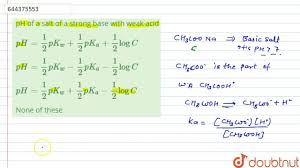 644375553
pH of a salt of a strong base with weak acid
pH = 1/2 pKw + 1/2 pKa + 1/2 log C
pH = 1/2 pKw + 1/2 pKa − 1/2 log C
pH = 1/2 pKw + 1/2 pKa − 1/2 log C
None of these
CH3COO Na ⇒ Basic salt
C its pH > 7
CH3COO⁻ is the part of
WA CH3COOH
CH3COOH ⇌ CH3COO⁻ + H⁺
Ka = [CH3COO⁻][H⁺] / [CH3COOH]
doubtnut